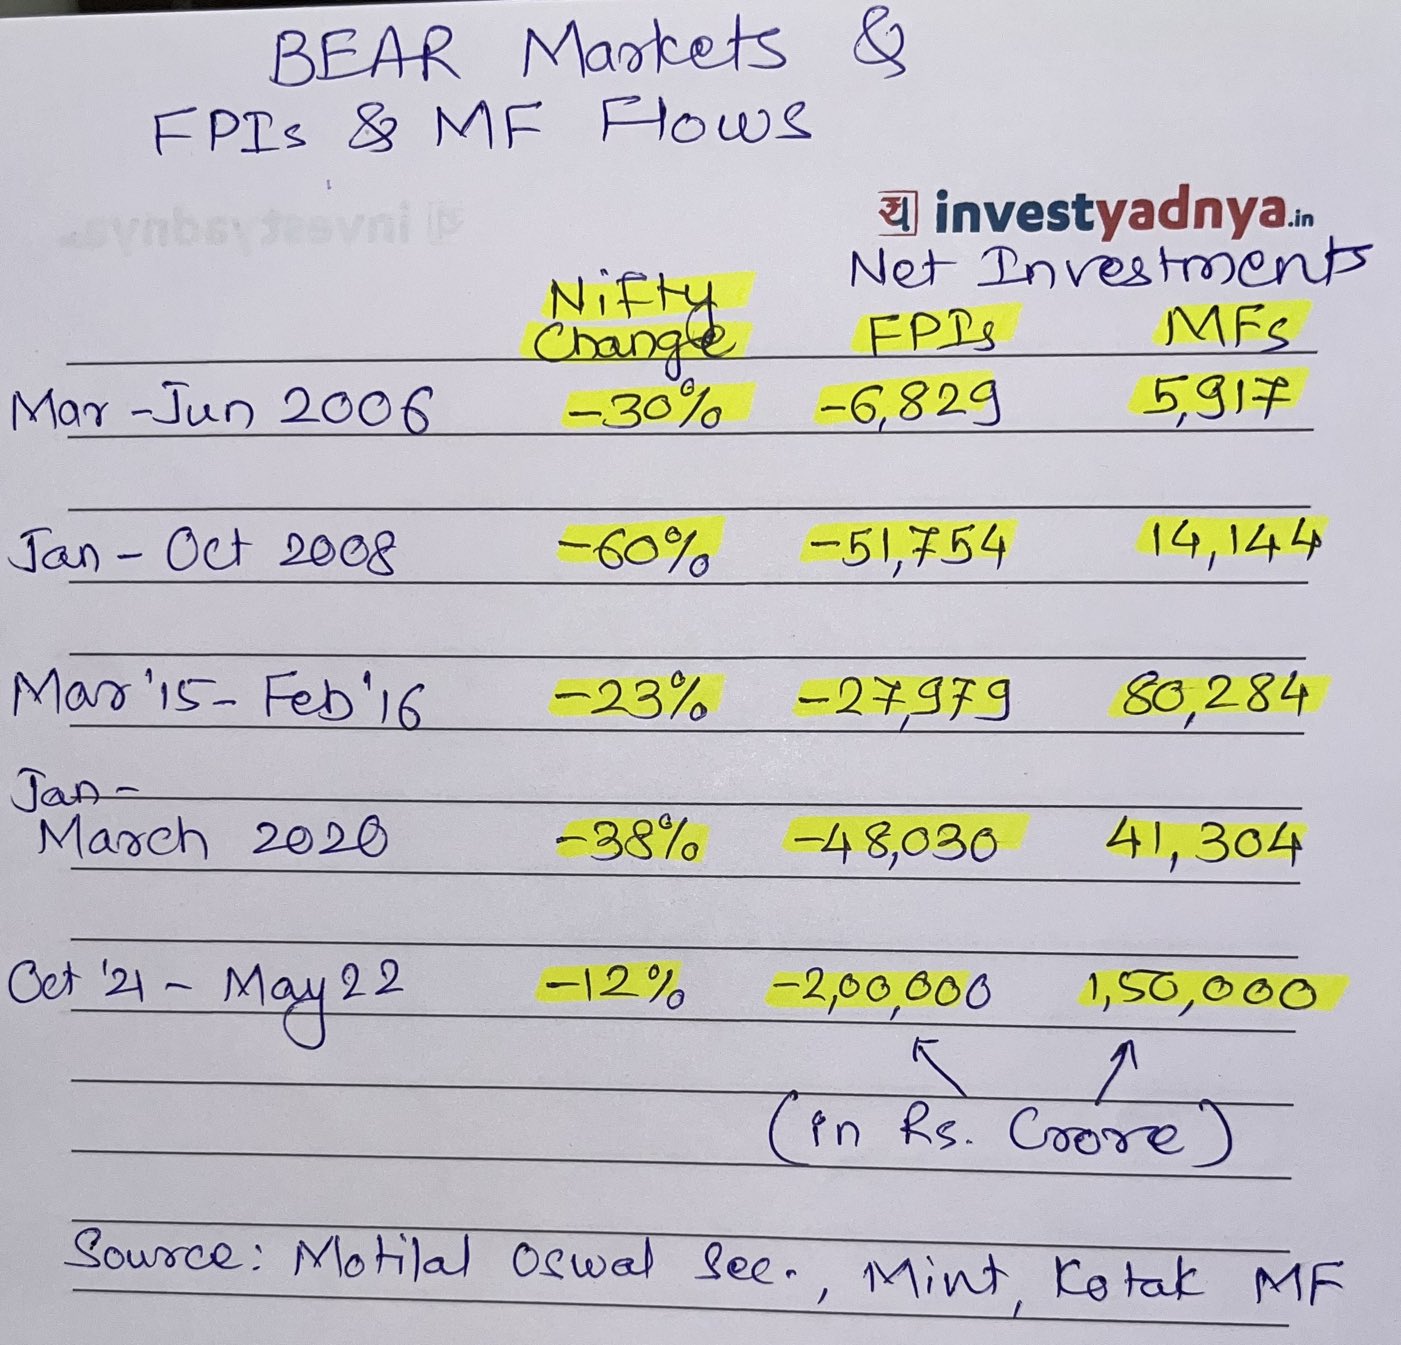 BEAR Markets &
FPIs & MF Flows
य investyadnya.in
Net Investments
Nifty
Change FPIs MFs
Mar-Jun 2006 -30% -6,829 5,917
Jan-Oct 2008 -60% -51,754 14,144
Mar'15-Feb'16 -23% -27,979 80,284
Jan-
March 2020 -38% -48,030 41,304
Oct '21-May 22 -12% -2,00,000 1,50,000
(in Rs. Crore)
Source: Motilal Oswal Sec., Mint, Kotak MF